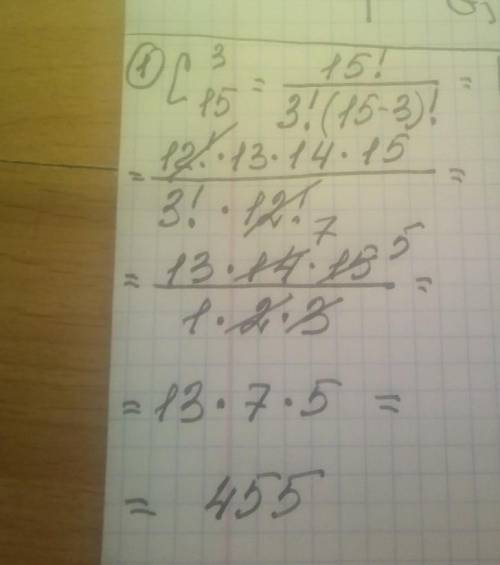 ① C³₁₅ = 15! / 3!(15-3)! =
= 12!·13·14·15 / 3!·12! =
= 13·14·15 / 1·2·3 = 7 5
= 13·7·5 =
= 455